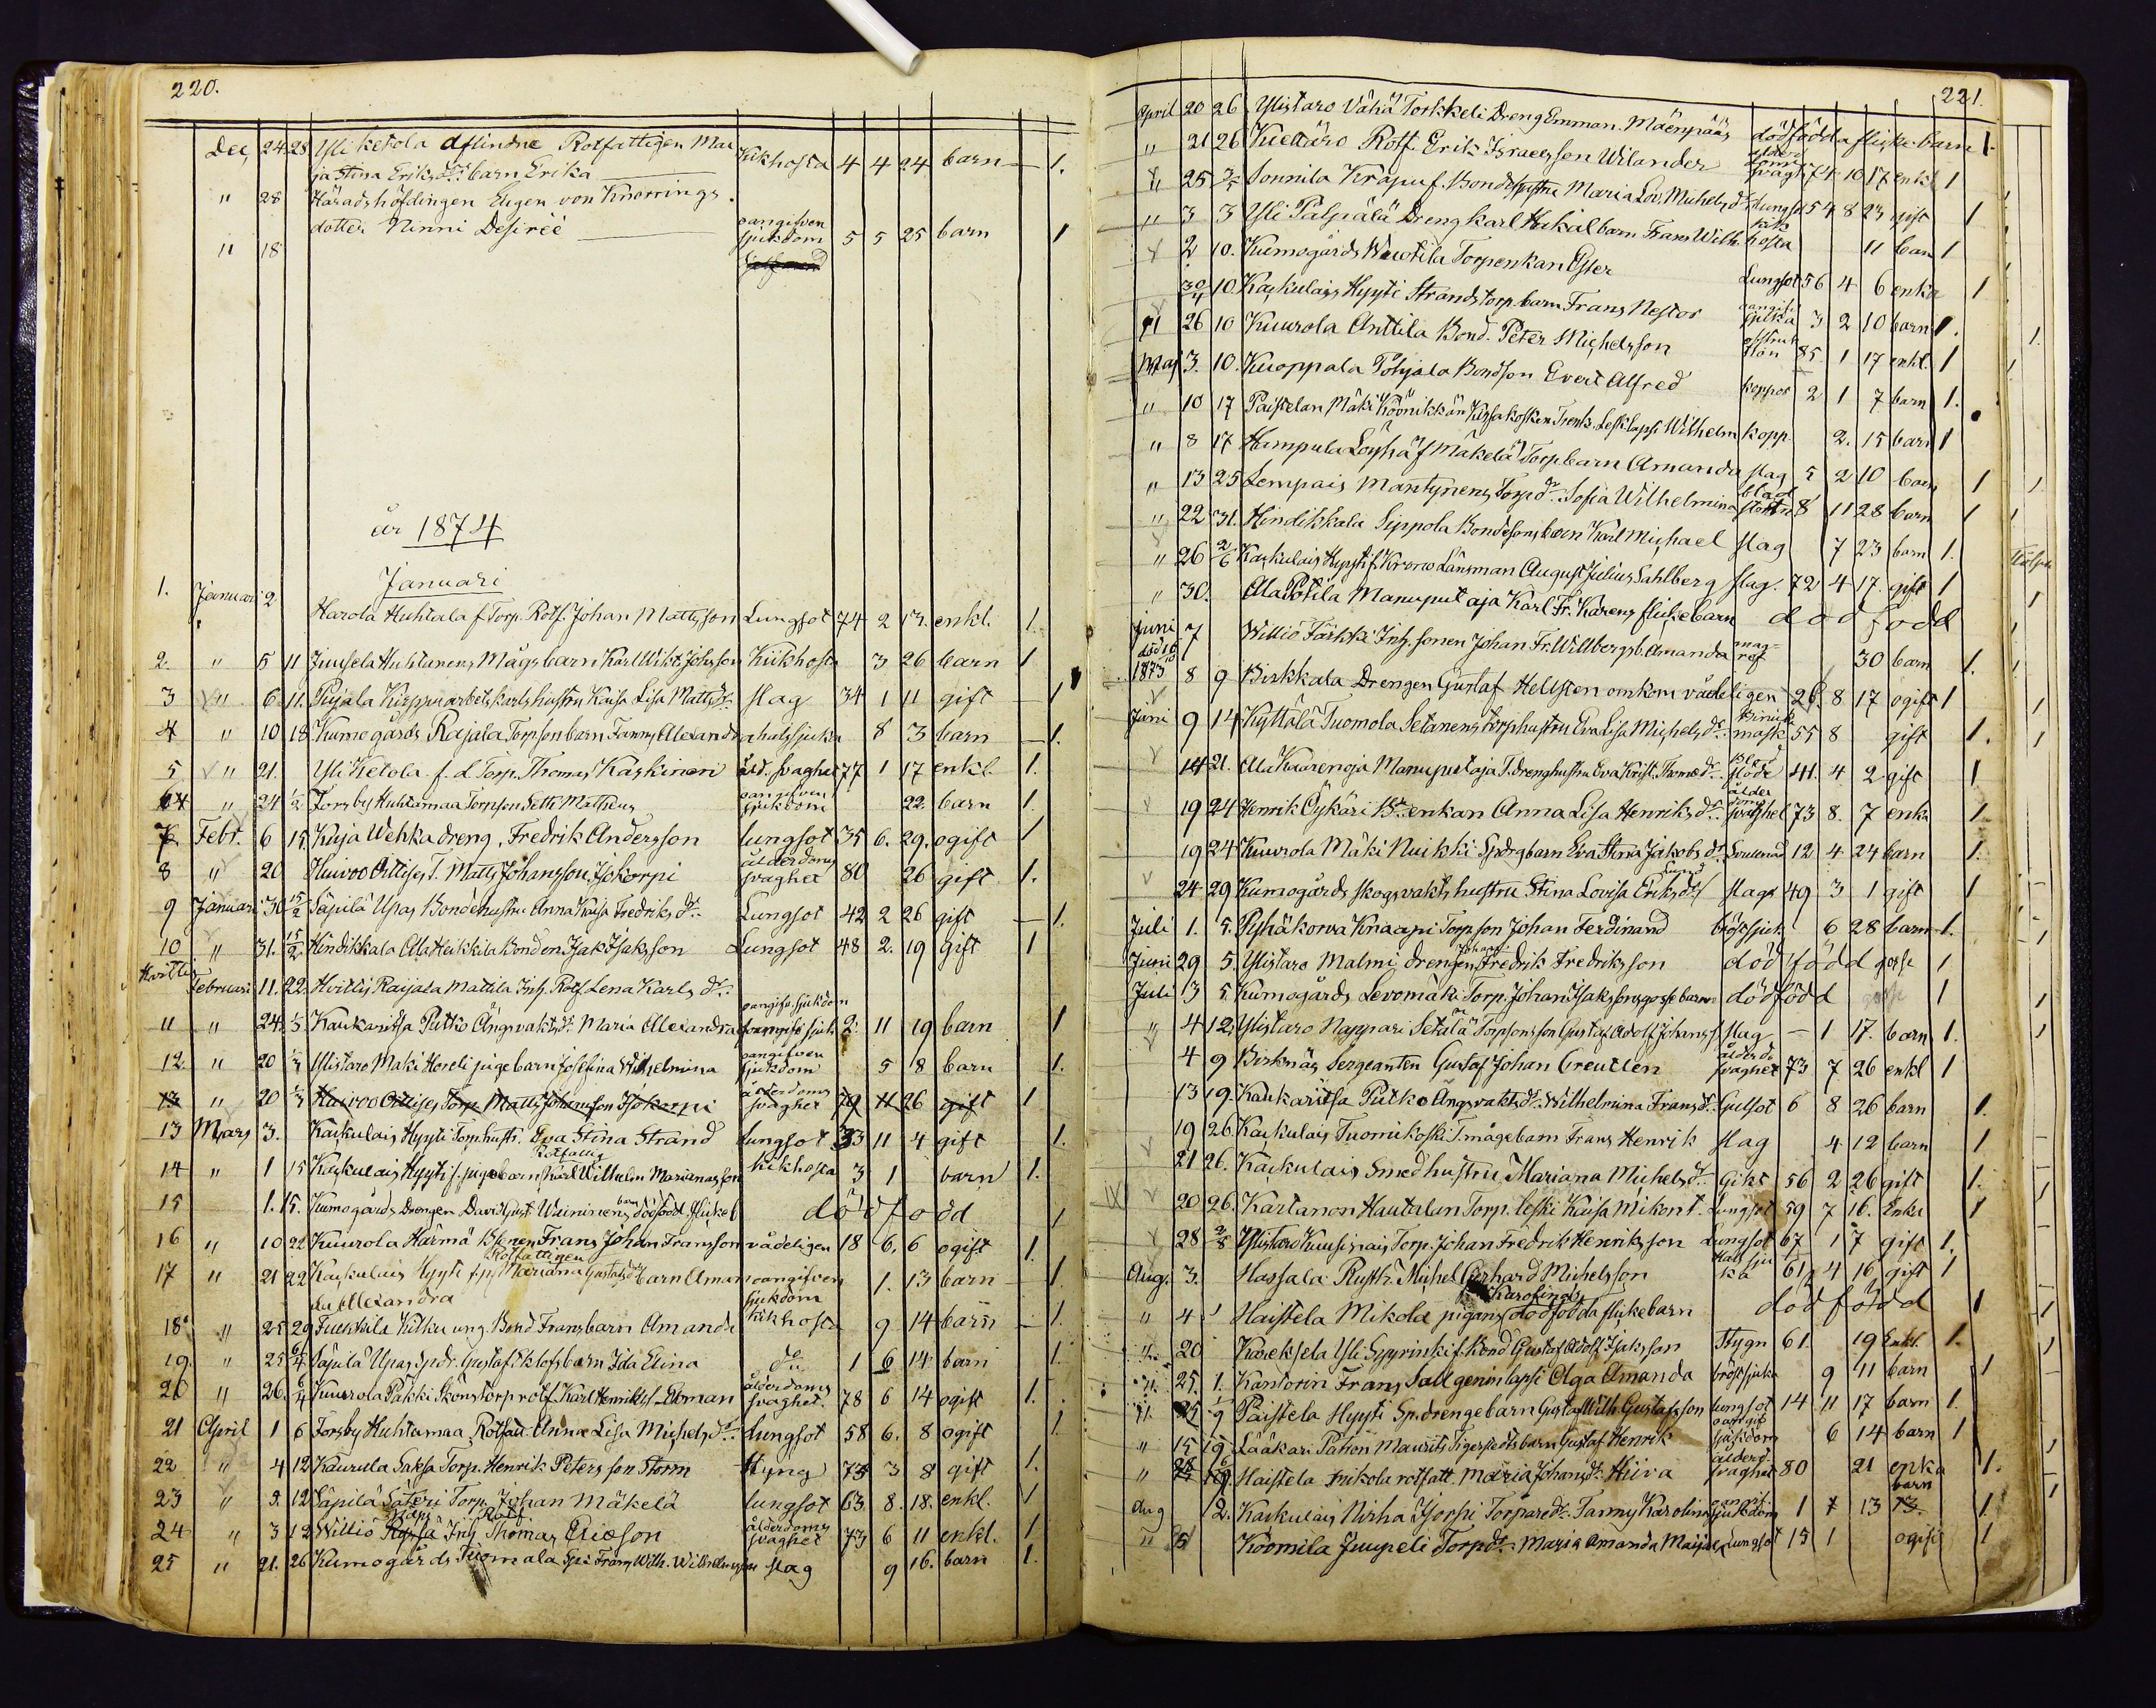 220.
Dec, 24. 28 Yli ketola aflindne Rotfattigen Ma
ja Stina Eriks dr barn Erika Kikhosta 4 4 24 barn 1.
" 28 Häradshöfdingen Eugen von Knorrings
" 18 dotter Ninni Desireé oangifven sjukdom 5 5 25 barn 1
år 1874
Januari
1. Januari 2 Harola Huhtala f. Torp. Rotf. Johan Mattsson Lungsot 74 2 13. enkl. 1.
2. " 5 11 Juusela Huhtanens Mågs barn Karl Wikt. Johsson Kikhosta 3 26 barn 1
3 " 6. 11. Pirjala Kirppu arbetskarls hustru Kaisa Lisa Matts dr slag 34 1 11 gift 1
4 " 10 18. Kumo gårds Rajala Torpson barn Fanny Alexandra halssjuka 8 3 barn 1.
5 " 21. Yli Ketola f. d. Torp. Thomas Kaskinen åld. svaghet 77 1 17 enkl. 1.
6 " 24 1/2 Forsby Huhtamaa Torpson Seth Mattheus oangifven sjukdom 22. barn 1.
7 Febr. 6 15. Kuja Wehka dreng, Fredrik Andersson lungsot 35 6. 29. ogift 1
8 " 20 Huivoo Ottiles T. Matts Johansson Isokorpi ålderdoms svaghet 80 26 gift 1.
9 Januari 30 15/2 Säpilä Upas Bondehustru Anna Kaisa Fredriks dr Lungsot 42 2 26 gift 1.
10 " 31. 15/2 Hindikkala Ala Heikkila Bonden Isak Isaksson Lungsot 48 2. 19 gift 1
Hvittis
Februari 11. 22. Hvittis Raijala Mattila Inh. Rotf Lena Karls dr
11 " 24. 1/3 Kaukaritsa Putko Ängsvakts dr Maria Alexandra oangifv. sjukdom 2. 11 19 barn 1
12. " 20 1/3 Ylistaro Maki Horeli pige barn Josefina Wilhelmina oangifven sjukdom 5 8 barn 1.
13 " 20 1/3 Huivoo Ottiles Torp. Matts Johansson Isokorpi ålderdoms svaghet 79 11 26 gift 1
13 Mars 3. Kaskulais Hyyti Torp. hustr. Eva Stina Strand lungsot 33 11 4 gift 1.
14 " 1 15 Kaskulais Hyyti f. piga barn Rotfattig Karl Wilhelm Marianasson kikhosta 3 1 barn 1.
15 1. 15. Kumogårds Drengen David Gust. Weininens barn dödfödd flickeb dödfödd 1
16 " 10 22 Kuurola Härmä Bsonen Frans Johan Fransson vådeligen 18 6. 6 ogift 1.
17 " 21 22 Kaskulais Hyyti f. p. Rotfattigen Mariana Gustafs dr barn Aman oangifven 1. 13 barn 1.
da Alexandra sjukdom
18. " 25 29 Fuekkila Kilkku ung. Bond Frans barn Amanda kikhosta 9 14 barn 1.
19. " 25 6/4 Säpilä Upas Spdr. Gustaf Eklofs barn Ida Elina do 1 6 14 barn 1.
20 " 26. 6/4 Kuurola Pakki Skönstorp rotf. Karl Henriks s. Ekman ålderdoms svaghet. 78 6 14 ogift 1.
21 April 1 6 Forsby Huhtamaa Rotfatt. Anna Lisa Michels dr lungsot 58 6. 8 ogift 1
22 " 4 12 Kauvula Saksa Torp. Henrik Peters son Storm Styng 73 3 8 gift 1.
23 " 5. 12 Säpilä Säteri Torp. Johan Mäkelä lungsot 63. 8. 18. enkl. 1
24 " 3 12 Willio Inh Rotf. Thomas Ericson ålderdoms svaghet 73 6 11 enkl. 1
25 " 21. 26 Kumogårds Tuomala Frans Wilh. Wilhelmsson slag 9 16. barn 1.
221.
April 20 26 Ylistaro Vähä Torkkeli Dreng Emman. Mäenpääs dödfödda flicke barn 1.
" 21 26 Kiettäro Rotf. Erik Israelsson Wilander ålderdoms svagh 74 10 17 enkl 1
" 25 3/5 Sonnila Krapu f. Bondhustru Maria Lov. Michels dr lungsot 54 8 23 gift 1
" 3 3 Yli Palpiälä Dreng Karl Heikel barn Frans Wilh. kik hosta 11 barn 1
2 10. Kumogårds Wantila Torpenkan Ester Lungsot 56 4 6 enka 1
30/4 10. Kaskulais Hyyti Strands torp. barn Frans Nestor oangif. sjukd 3 2 10 barn 1.
" 26 10 Kuurola Anttila Bond. Peter Michelsson 85 1 17 enkl. 1
Maj 3. 10. Kuoppala Pohjala Bondson Evert Alfred koppor 2 1 7 barn 1.
" 10 17 Paistelan Mäki Köönikkän Kissakosken Trenk. Lesk lapsi Wilhelm kopp. 2. 15 barn 1
" 8 17 Hampula Löyhä f Mäkelä Torpbarn Amanda slag 5 2 10 barn 1
" 13 25 Lempais Mantynens Torp dr. Sofia Wilhelmina blod störtn 8 11 28 barn 1
" 22 31. Hindikkala Seppola Bondesons barn Karl Michael slag 7 23 barn 1.
" 26 2/6 Kaskulais Hyyti f. Krono Länsman August Julius Sahlberg slag. 72 4 17. gift 1
" 30. Ala Potila Manuputaja Karl Fr. Karens flickebarn dödfödd
Juni 7 Willio Färkki Inh. sonen Johan Fr. Willbergs b. Amanda mag-rof 30 barn 1.
död 10/10 1873 8 9 Birkkala Drengen Gustaf Hellsten omkom vådeligen 26 8 17 ogift 1
Juni 9 14 Kyttälä Tuomola Setanens Torphustru Eva Lisa Michels dr Binnike mask 55 8 gift 1.
14 21. Ala Kaurenoja Manuputaja T. drenghustru Eva Krist. Thome dr blod flöde 41. 4 2 gift 1
19 24 Henrik Öykäri B. enkan Anna Lisa Henriks dr ålderdoms svaghet 73 8. 7 enka 1
19 24 Kuurola Mäki Nuikki Spdrg barn Eva Stina Jakobs dr Svullnad 12 4 24 barn 1.
24 29 Kumogårds skogsvakts hustru Stina Lovisa Eriks dr Lund slag 49 3 1 gift 1
Juli 1. 5. Pyhäkorva Knaapi Torpson Johan Ferdinand bröstsjuk 6 28 barn 1.
Juni 29 5. Ylistaro Malmi drengen Johan Fredrik Fredriksson dödfödd gosse 1
Juli 3 5. Kumogårds Levomäki Torp. Johan Isakssons gossebarn dödfödd gosse 1
" 4 12. Ylistaro Nappari Setälä Torpsons son Gustaf Adolf Johans s. slag - 1 17. barn 1.
4 9 Birknäs Sergeanten Gustaf Johan Creutlen ålderd. svaghet 73 7 26 enkl 1
13 19. Kaukaritsa Putko Ängsvakts dr Wilhelmina Frans dr Gulsot 6 8 26 barn 1.
19 26. Kaskulais Tuomikoski T. mågs barn Frans Henrik slag 4 12 barn 1
21 26. Kaskulais Smed hustru Mariana Michels dr Gikt 56 2 26 gift 1.
20 26. Kartanon Hautalun Torp. leski Kaisa Mikont. Lungsot 59 7 16. Enka 1
28 2/8 Ylistaro Kuusinais Torp. Johan Fredrik Henriksson Lungsot 67 1 7 gift 1.
Aug. 3. Hassala Rusth. Michel Gerhard Michelsson Halssjuka 61 4 16 gift 1
" 4 Haistela Mikola pigans Karolinas dödfödda flickebarn dödfödd 1
" 20 Kareksela Yli Sypriinki f. Bond Gustaf Adolf Isaksson Stygn 61. 19 Enkl. 1.
" 25. 1. Kantorin Frans Sallgenin lapsi Olga Amanda bröstsjuka 9 11 barn 1
" 25 9 Paistela Hyyti Sp. drengebarn Gustaf Wilh. Gustafsson lungsot 14 11 17 barn 1.
" 15 19 Lääkari Pation Maurits Tigerstedts barn Gustaf Henrik oangif sjukdom 6 14 barn 1
" Haistela Mikola rotfatt. Maria Johans dr Hiiva ålderd. svaghet 80 21 enka 1.
Aug 2. Kaskulais Nisha Isorpi Torpare dr. Fanny Karolina oangif. sjukdom 1 7 13 barn 1.
" 5 Köömila Juupeli Torp dr. Maria Amanda Maijas lungsot 15 1 ogift 1